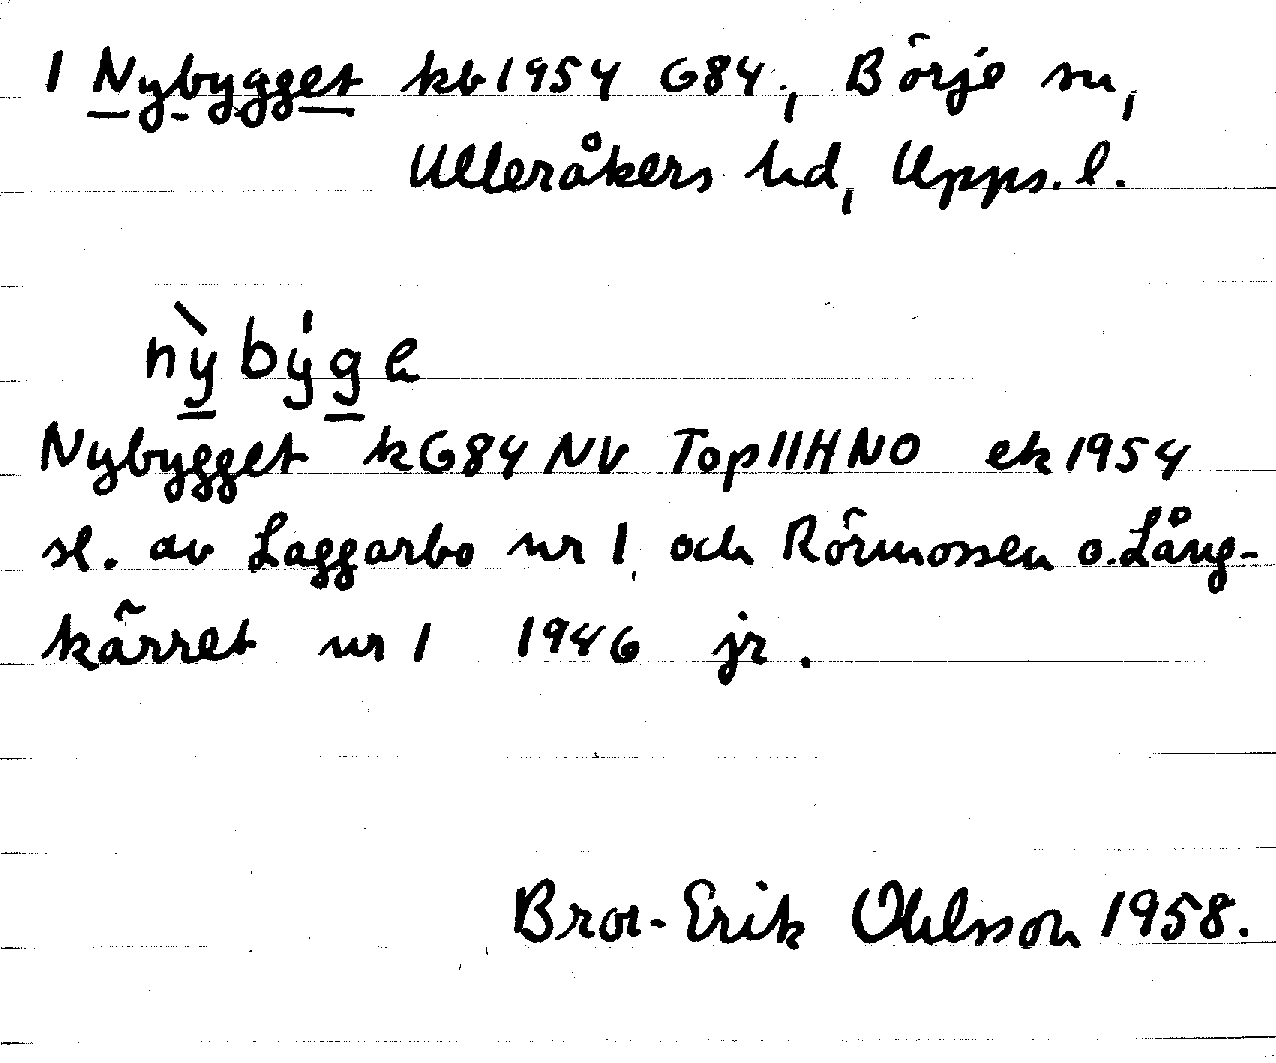 1 Nybygget kb 1954 G84, Börje sn,
Ulleråkers hd, Upps. l.
nỳbýge
Nybygget k G84 NV Top 11H NO ek 1954
sl. av Laggarbo nr 1, och Rörmossen o. Lång-
kärret nr 1 1946 jr.
Bror-Erik Ohlsson 1958.